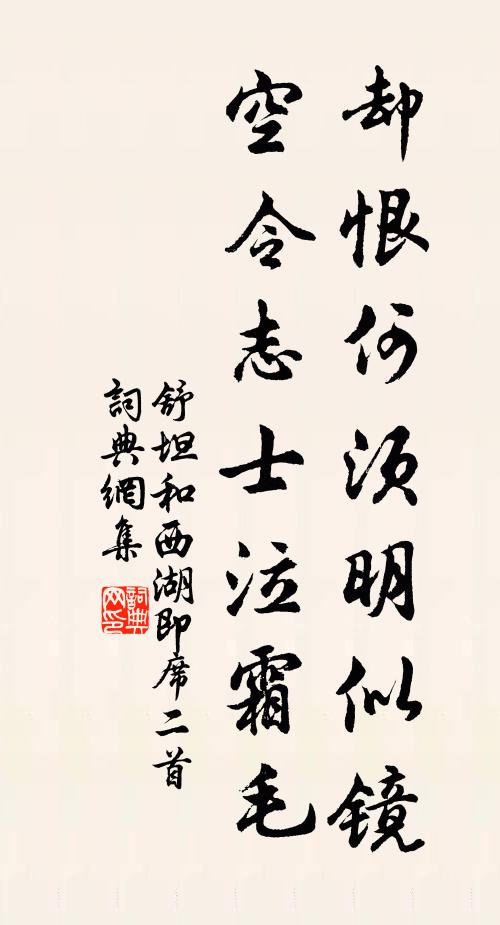 却恨何须明似镜
空令志士泣霜毛
舒坦和西湖即席二首
詞典網集
詞典网印